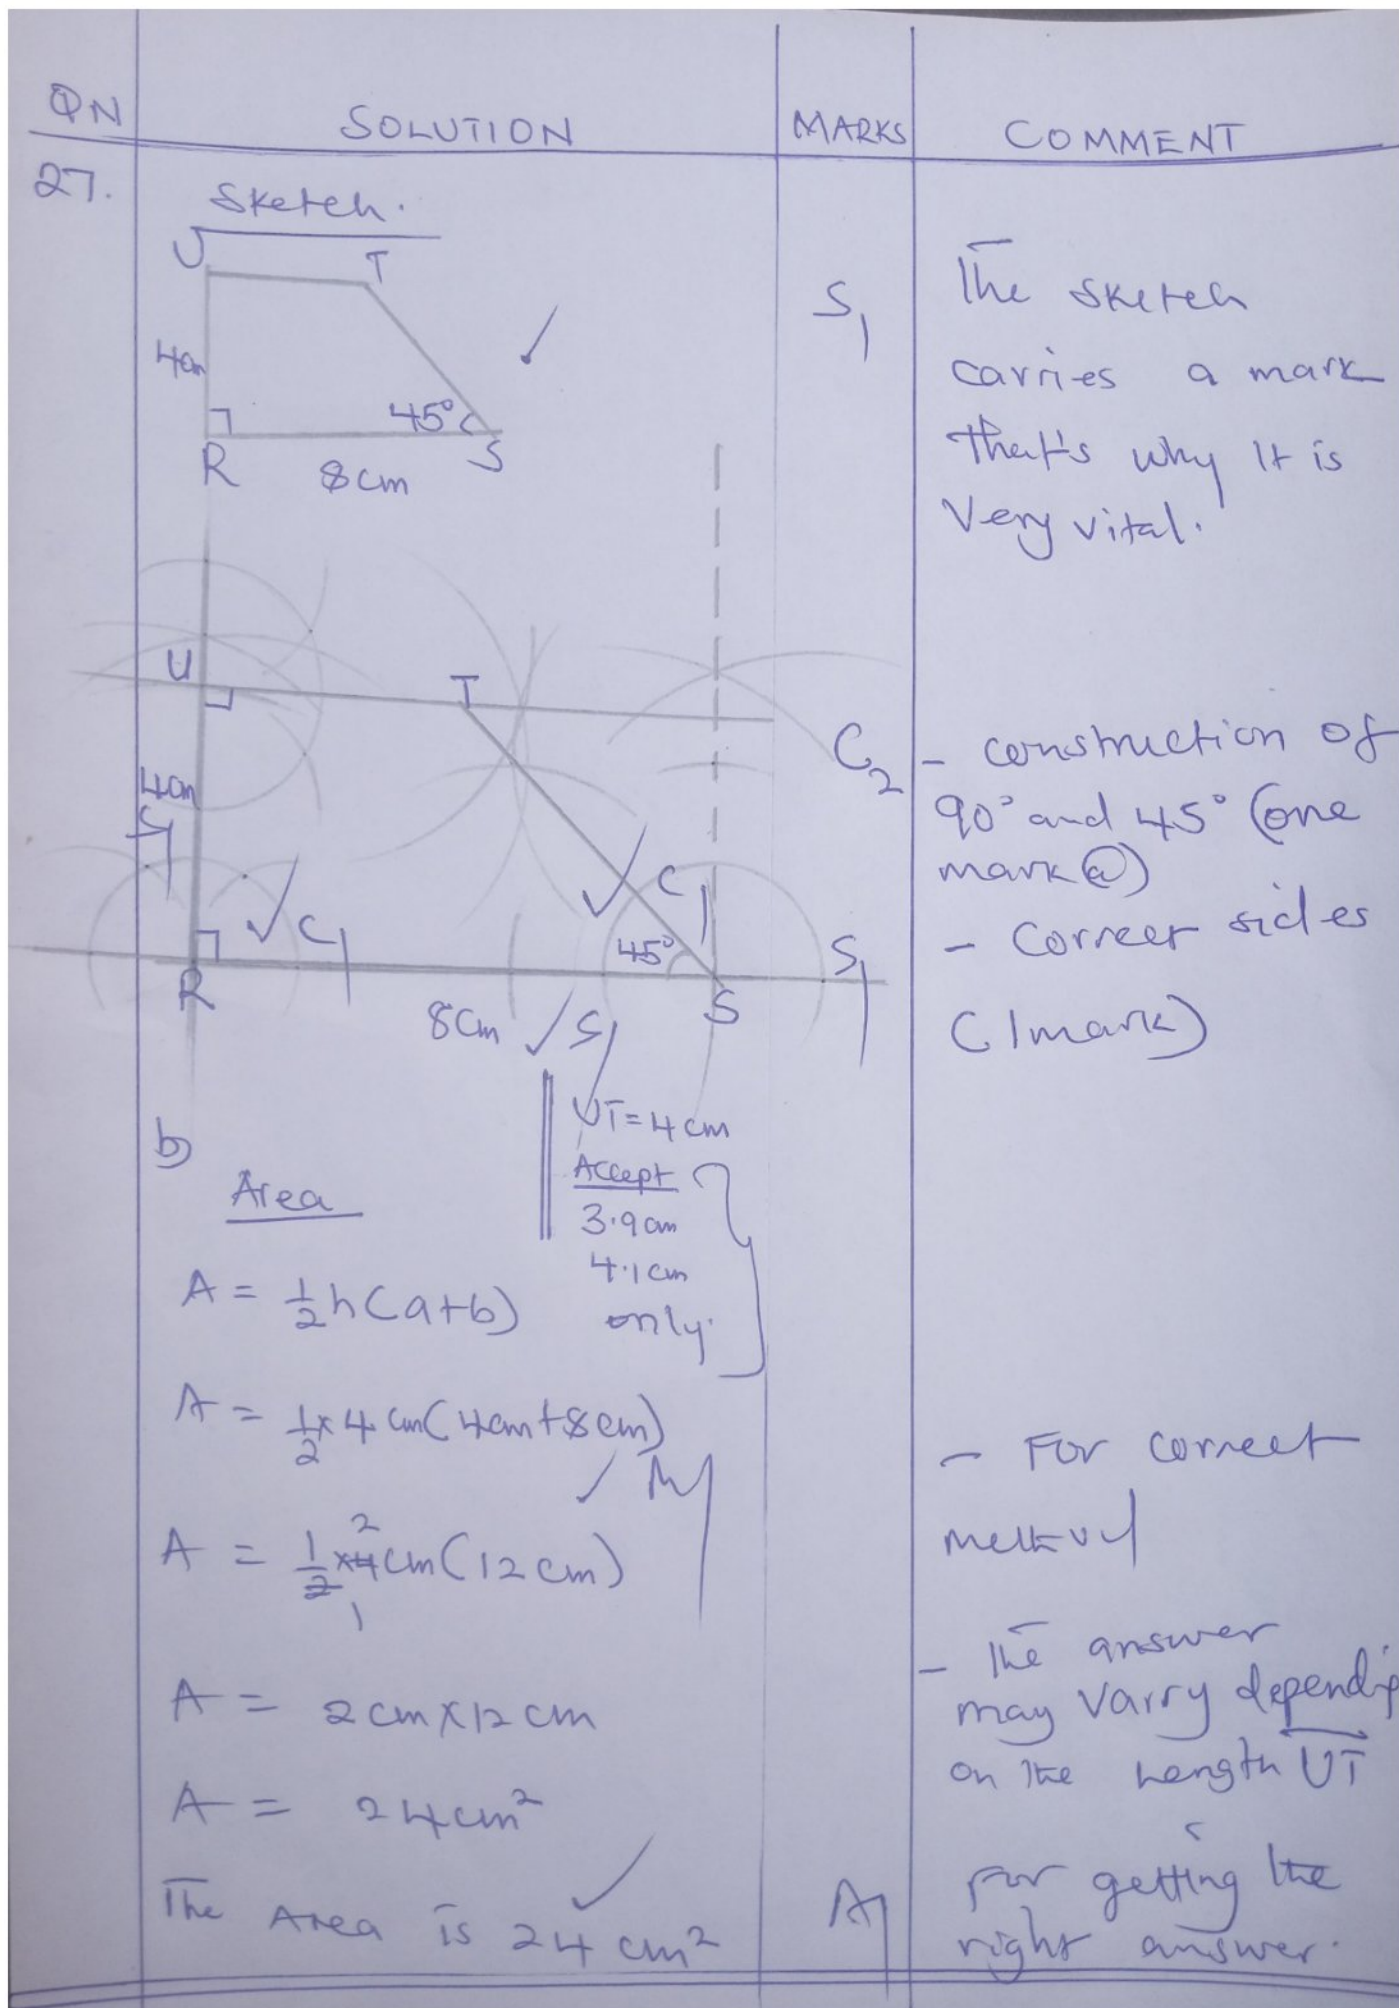 QN SOLUTION MARKS COMMENT
27. Sketch.
U T
4cm
45°
R 8cm S
S1
The sketch
carries a mark
that's why it is
very vital.
U T
4cm
S1
C1
C1
45°
R S
8cm S1
C2
S1
- construction of
90° and 45° (one
mark @)
- Correct sides
(1mark)
UT = 4cm
Accept
3.9cm
4.1cm
only.
b)
Area
A = 1/2 h(a+b)
A = 1/2 × 4cm(4cm+8cm)
M1
A = 1/2 × 4cm(12cm)
2
1
A = 2cm×12cm
A = 24cm²
The Area is 24cm²
- For correct
- The answer
may varry depending
on the length UT
A1
for getting the
right answer.